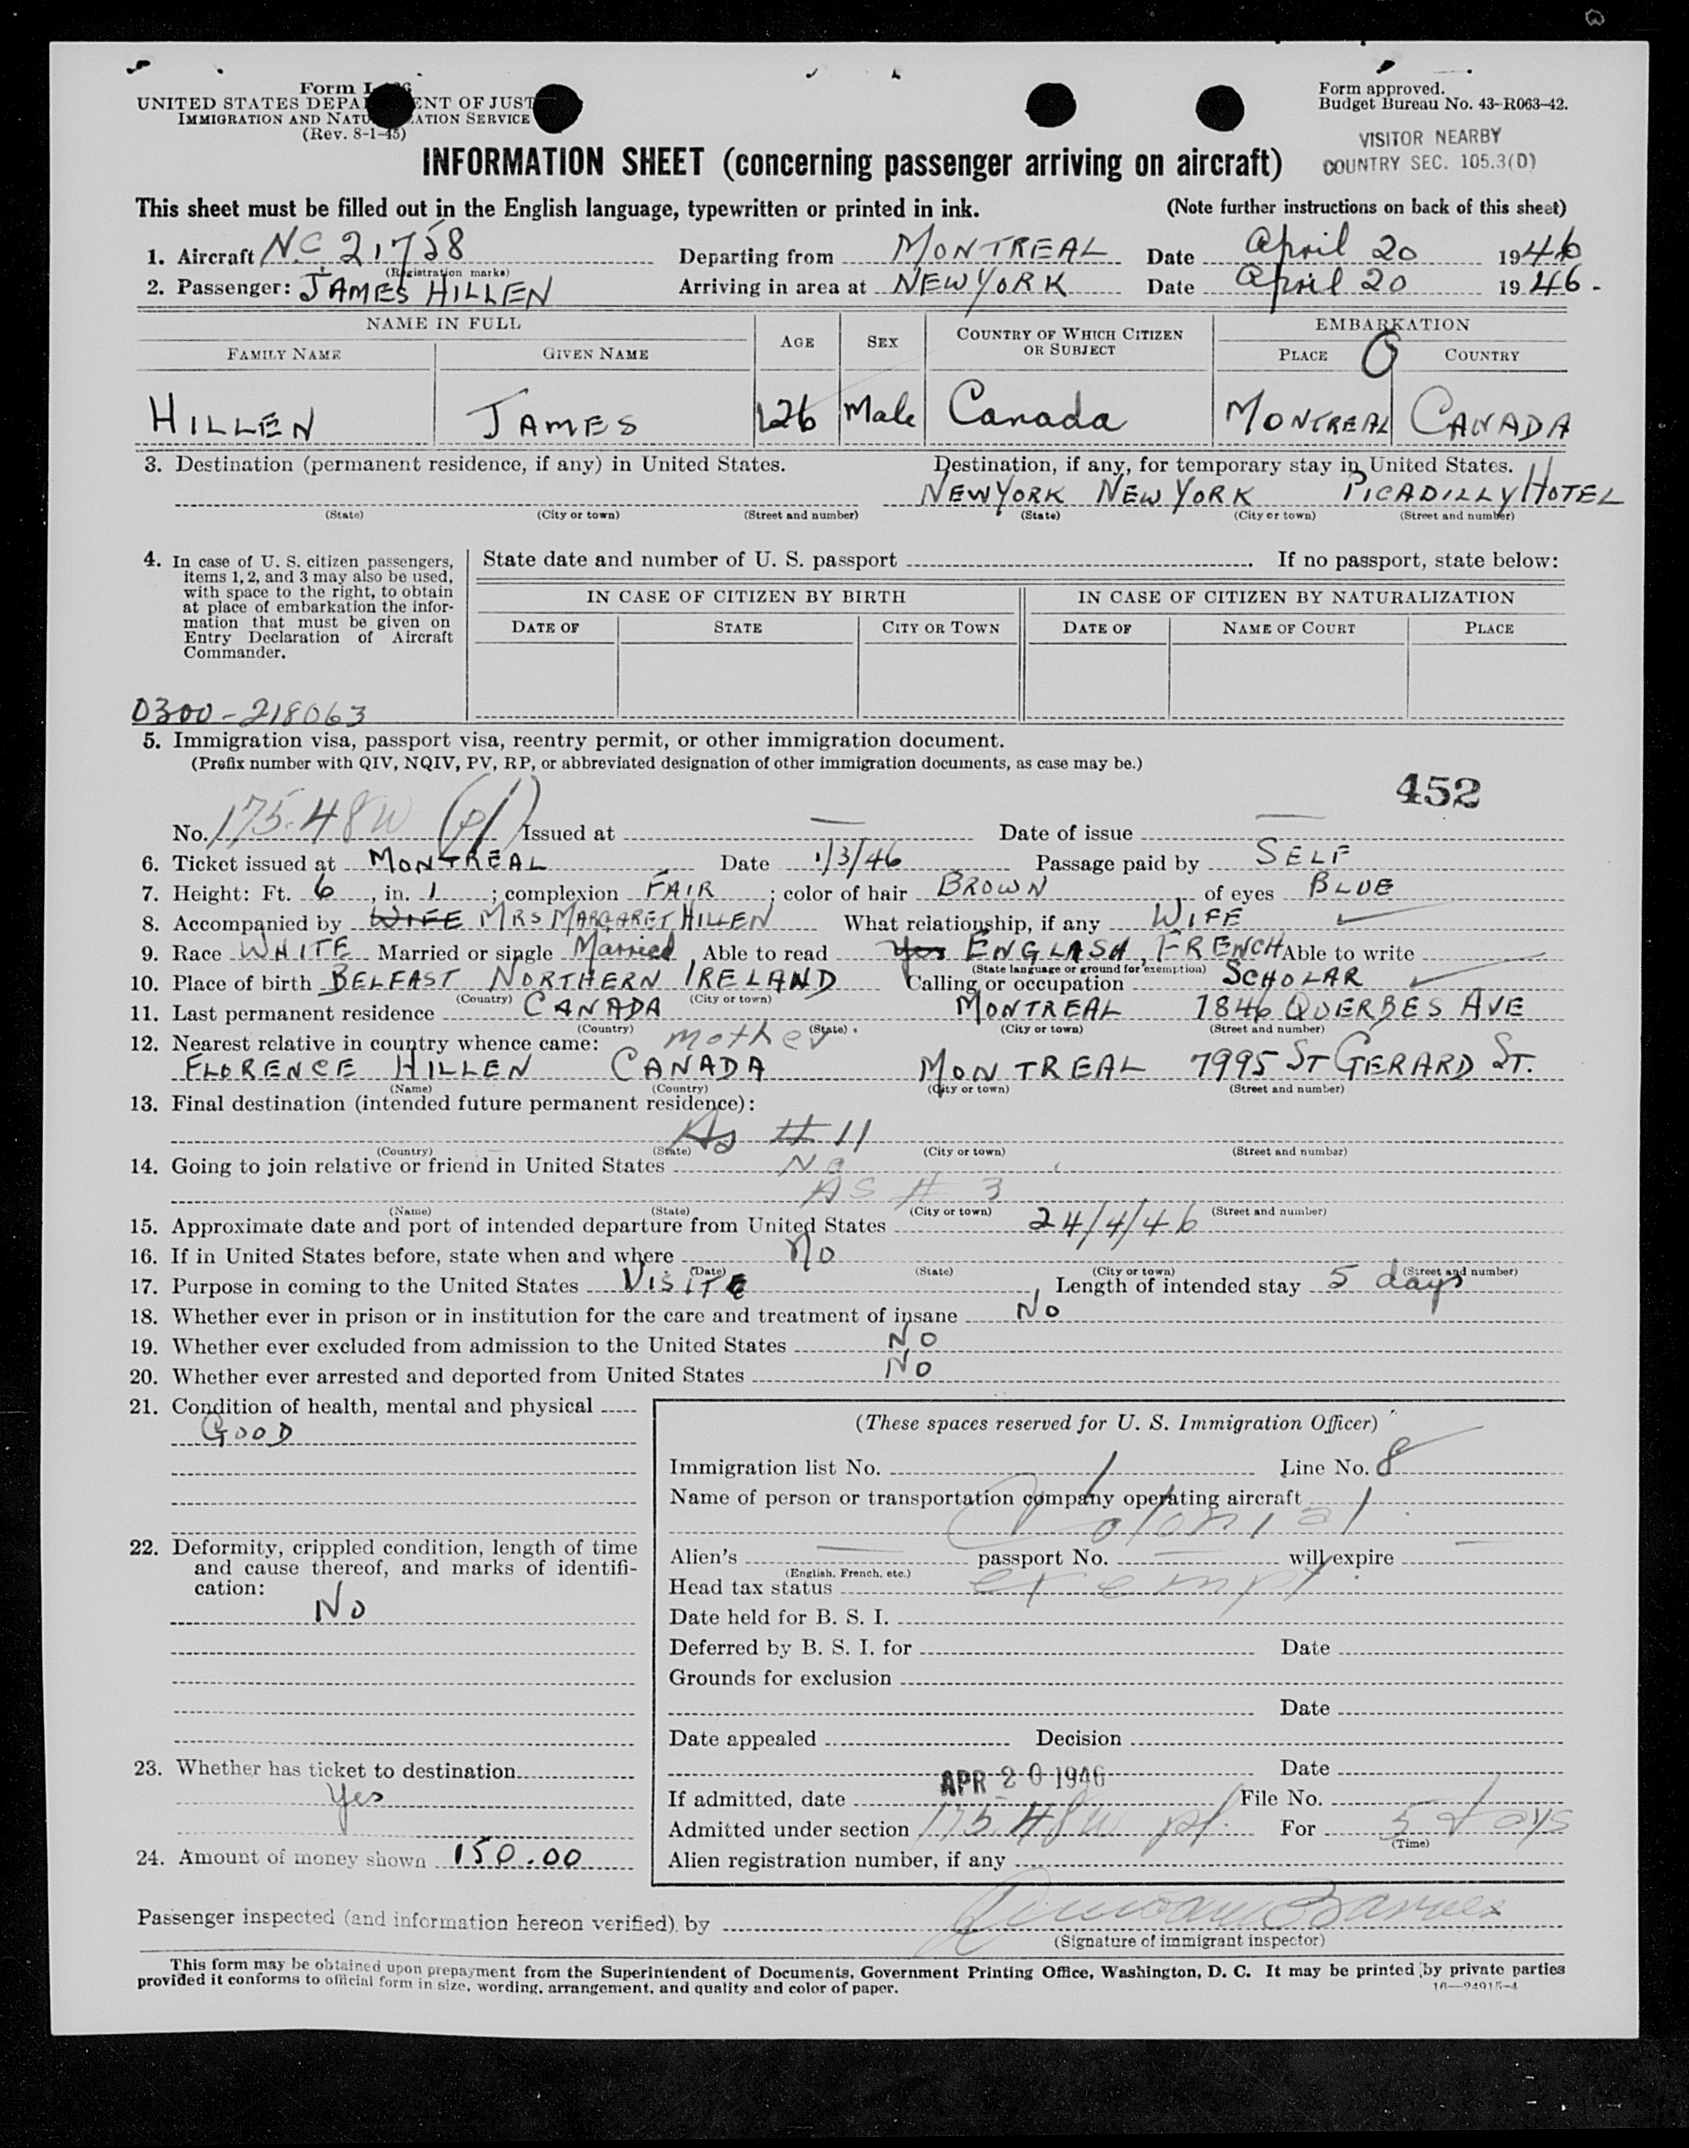 Form I-466
UNITED STATES DEPARTMENT OF JUSTICE
IMMIGRATION AND NATURALIZATION SERVICE
(Rev. 8-1-45)
Form approved.
Budget Bureau No. 43-R063-42.
VISITOR NEARBY
COUNTRY SEC. 105.3(D)
INFORMATION SHEET (concerning passenger arriving on aircraft)
This sheet must be filled out in the English language, typewritten or printed in ink. (Note further instructions on back of this sheet)
1. Aircraft N.C 21758 Departing from MONTREAL Date April 20 1946
(Registration marks)
2. Passenger: JAMES HILLEN Arriving in area at NEW YORK Date April 20 1946.
NAME IN FULL AGE SEX COUNTRY OF WHICH CITIZEN OR SUBJECT EMBARKATION
FAMILY NAME GIVEN NAME PLACE COUNTRY
HILLEN JAMES 26 Male Canada MONTREAL CANADA
3. Destination (permanent residence, if any) in United States. Destination, if any, for temporary stay in United States.
NEW YORK NEW YORK PICADILLY HOTEL
(State) (City or town) (Street and number) (State) (City or town) (Street and number)
4. In case of U. S. citizen passengers,
items 1, 2, and 3 may also be used,
with space to the right, to obtain
at place of embarkation the infor-
mation that must be given on
Entry Declaration of Aircraft
Commander.
State date and number of U. S. passport . If no passport, state below:
IN CASE OF CITIZEN BY BIRTH IN CASE OF CITIZEN BY NATURALIZATION
DATE OF STATE CITY OR TOWN DATE OF NAME OF COURT PLACE
0300-218063
5. Immigration visa, passport visa, reentry permit, or other immigration document.
(Prefix number with QIV, NQIV, PV, RP, or abbreviated designation of other immigration documents, as case may be.)
452
No. 175.48W (pl) Issued at — Date of issue —
6. Ticket issued at MONTREAL Date 1/3/46 Passage paid by SELF
7. Height: Ft. 6, in. 1; complexion FAIR; color of hair BROWN of eyes BLUE
8. Accompanied by WIFE MRS MARGARET HILLEN What relationship, if any WIFE
9. Race WHITE Married or single Married, Able to read Yes ENGLASH, FRENCH Able to write
(State language or ground for exemption)
10. Place of birth BELFAST NORTHERN IRELAND Calling or occupation SCHOLAR
(Country) (City or town)
11. Last permanent residence CANADA MONTREAL 7846 QUERBES AVE
(Country) (State) (City or town) (Street and number)
12. Nearest relative in country whence came: mother
FLORENCE HILLEN CANADA MONTREAL 7995 ST GERARD ST.
(Name) (Country) (City or town) (Street and number)
13. Final destination (intended future permanent residence):
As # 11
(Country) (State) (City or town) (Street and number)
14. Going to join relative or friend in United States No
AS # 3
(Name) (State) (City or town) (Street and number)
15. Approximate date and port of intended departure from United States 24/4/46
16. If in United States before, state when and where No
(Date) (State) (City or town) (Street and number)
17. Purpose in coming to the United States VISITE, Length of intended stay 5 days
18. Whether ever in prison or in institution for the care and treatment of insane No
19. Whether ever excluded from admission to the United States No
20. Whether ever arrested and deported from United States No
21. Condition of health, mental and physical
GOOD
22. Deformity, crippled condition, length of time
and cause thereof, and marks of identifi-
cation:
No
23. Whether has ticket to destination
Yes
24. Amount of money shown 150.00
(These spaces reserved for U. S. Immigration Officer)
Immigration list No. 1 Line No. 8
Name of person or transportation company operating aircraft
Colonial
Alien's — passport No. — will expire —
(English, French, etc.)
Head tax status exempt
Date held for B. S. I.
Deferred by B. S. I. for Date
Grounds for exclusion
Date
Date appealed Decision
Date
If admitted, date APR 20 1946 File No.
Admitted under section 175.48W pl. For 5 days
(Time)
Alien registration number, if any
Passenger inspected (and information hereon verified) by
(Signature of immigrant inspector)
This form may be obtained upon prepayment from the Superintendent of Documents, Government Printing Office, Washington, D. C. It may be printed by private parties
provided it conforms to official form in size, wording, arrangement, and quality and color of paper.
16—24915-4